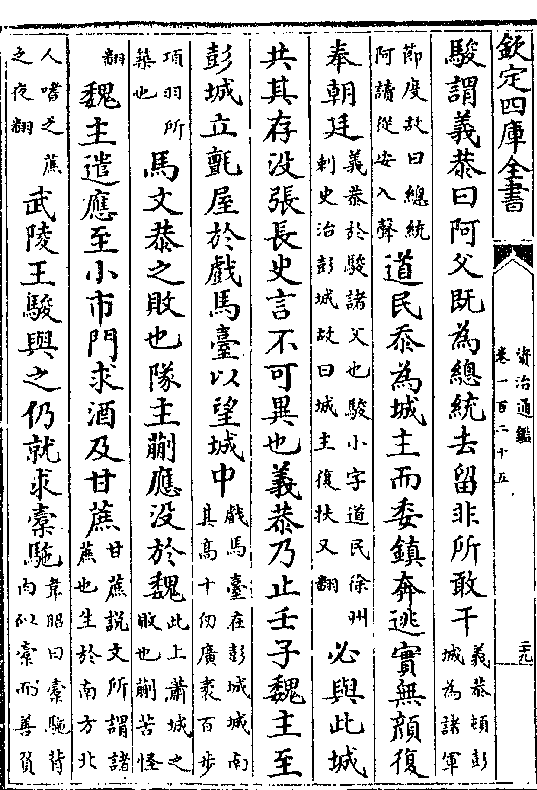 欽定四庫全書
資治通鑑
卷一百二十五
二十九
駿謂義恭曰阿父既為總統去留非所敢干義恭頓彭城為諸軍
節度故曰總統阿讀從安入聲道民忝為城主而委鎮奔逃實無顔復
奉朝廷義恭於駿諸父也駿小字道民徐州刺史治彭城故曰城主復扶又翻必與此城
共其存没張長史言不可異也義恭乃止壬子魏主至
彭城立氊屋於戲馬臺以望城中戲馬臺在彭城城南其高十仞廣袤百步
項羽所築也馬文恭之敗也隊主蒯應没於魏此上蕭城之敗也蒯苦怪
翻魏主遣應至小市門求酒及甘蔗甘蔗説文所謂諸蔗也生於南方北
人嗜之蔗之夜翻武陵王駿與之仍就求橐駞韋昭曰橐駞背肉似橐而善負